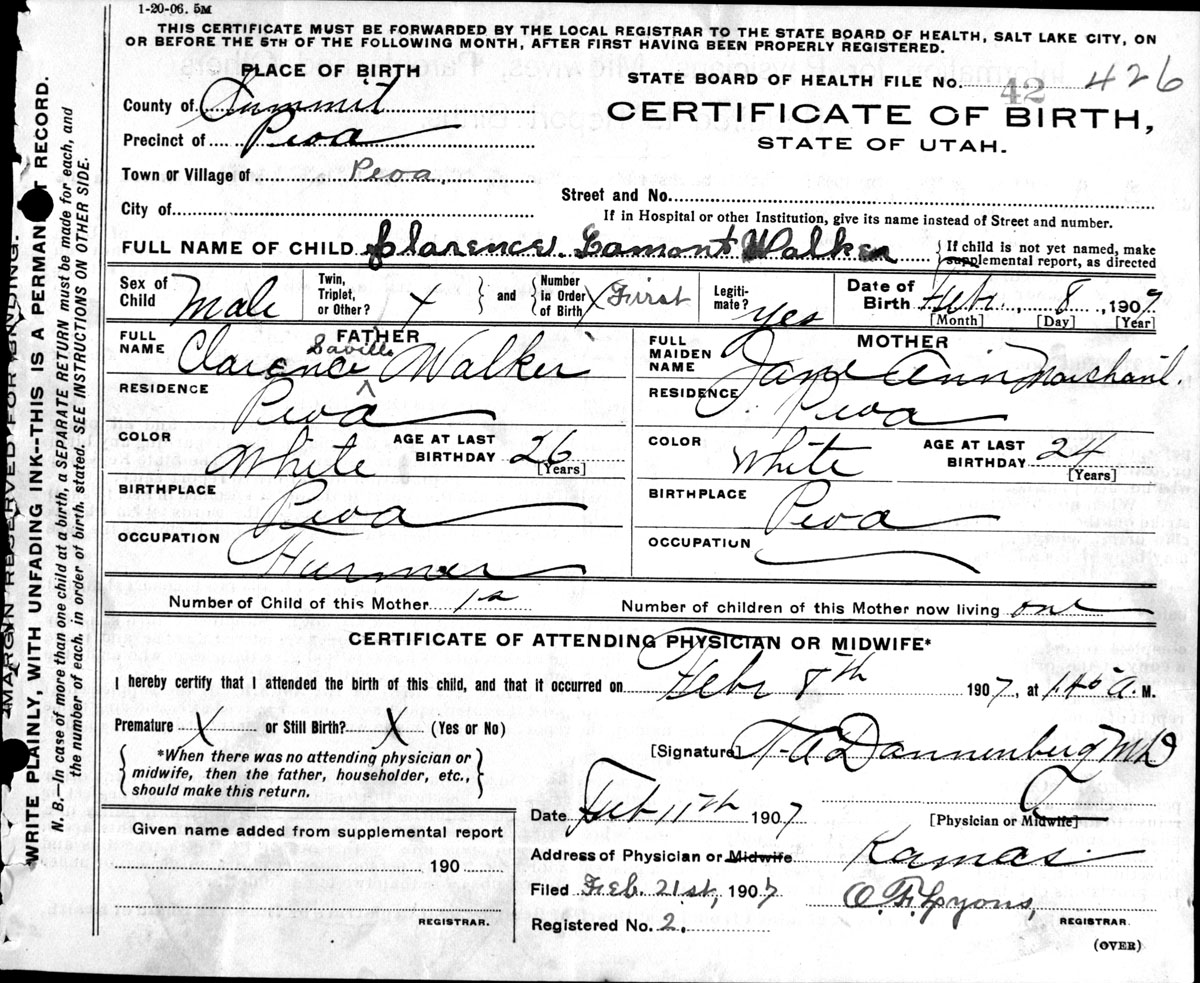 1-20-06. 5M
THIS CERTIFICATE MUST BE FORWARDED BY THE LOCAL REGISTRAR TO THE STATE BOARD OF HEALTH, SALT LAKE CITY, ON
OR BEFORE THE 5TH OF THE FOLLOWING MONTH, AFTER FIRST HAVING BEEN PROPERLY REGISTERED.
PLACE OF BIRTH
STATE BOARD OF HEALTH FILE No. 42 426
County of Summit
CERTIFICATE OF BIRTH,
Precinct of Peoa
STATE OF UTAH.
Town or Village of Peoa,
Street and No.
City of
If in Hospital or other Institution, give its name instead of Street and number.
FULL NAME OF CHILD Clarence Lamont Walker { If child is not yet named, make supplemental report, as directed
Sex of Child Male Twin, Triplet, or Other? X } and { Number in Order of Birth X First Legiti- mate? yes Date of Birth Feb., 8, 1907
[Month] [Day] [Year]
FATHER
MOTHER
FULL NAME Clarence Saville Walker
FULL MAIDEN NAME Jane Ann Marchant
RESIDENCE Peoa
RESIDENCE Peoa
COLOR White AGE AT LAST BIRTHDAY 26 [Years]
COLOR White AGE AT LAST BIRTHDAY 24 [Years]
BIRTHPLACE Peoa
BIRTHPLACE Peoa
OCCUPATION Farmer
OCCUPATION
Number of Child of this Mother 1st Number of children of this Mother now living one
CERTIFICATE OF ATTENDING PHYSICIAN OR MIDWIFE*
I hereby certify that I attended the birth of this child, and that it occurred on Feb 8th 1907, at 1.40 a. M.
Premature X or Still Birth? X (Yes or No)
[Signature] T A Dannenberg MD
*When there was no attending physician or
midwife, then the father, householder, etc.,
should make this return.
[Physician or Midwife]
Date Feb 11th 1907
Given name added from supplemental report
190
REGISTRAR.
Address of Physician or Midwife Kamas
Filed Feb. 21st, 1907 O. F. Lyons, REGISTRAR.
Registered No. 2.
(OVER)
MARGIN RESERVED FOR BINDING.
WRITE PLAINLY, WITH UNFADING INK--THIS IS A PERMANENT RECORD.
N. B.—In case of more than one child at a birth, a SEPARATE RETURN must be made for each, and
the number of each, in order of birth, stated. SEE INSTRUCTIONS ON OTHER SIDE.